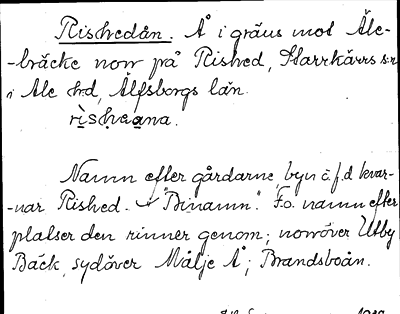 Rishedån. Å i gräns mot Äle-
-bräcke norr på Rished, Starrkärrs s:n
i Ale hd, Älfsborgs län.
rìsheana.
Namn efter gårdarne, byn o. f.d kvar-
-nar Rished. "Binamn". F.o. namn efter
platser den rinner genom; norröver Utby
Bäck, sydöver Målje Å; Brandsboån.